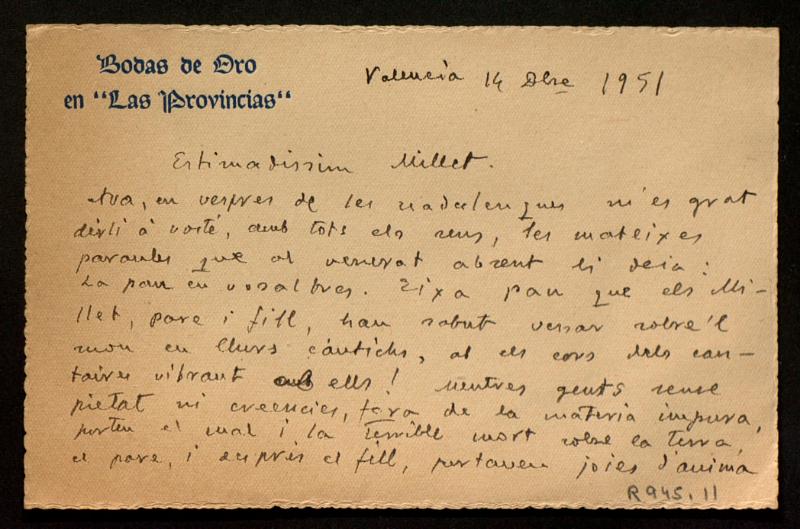 Bodas de Oro
en "Las Provincias"
Valencia 14 Dbre 1951
Estimadissim Millet.
Ara, en vespres de les nadalenques m'es grat
dirli á vosté, amb tots els seus, les mateixes
paraules que al venerat absent li deia:
La pau en vosaltres. Eixa pau que els Mi-
llet, pare i fill, han sabut vessar sobre'l
mon en llurs cántichs, al els cors dels can-
taires vibrant amb ells! Mentres gents sense
pietat ni creencies, fora de la materia impura,
porten el mal i la terrible mort sobre la terra,
el pare, i després el fill, portaven joies d'anima
R 945. 11